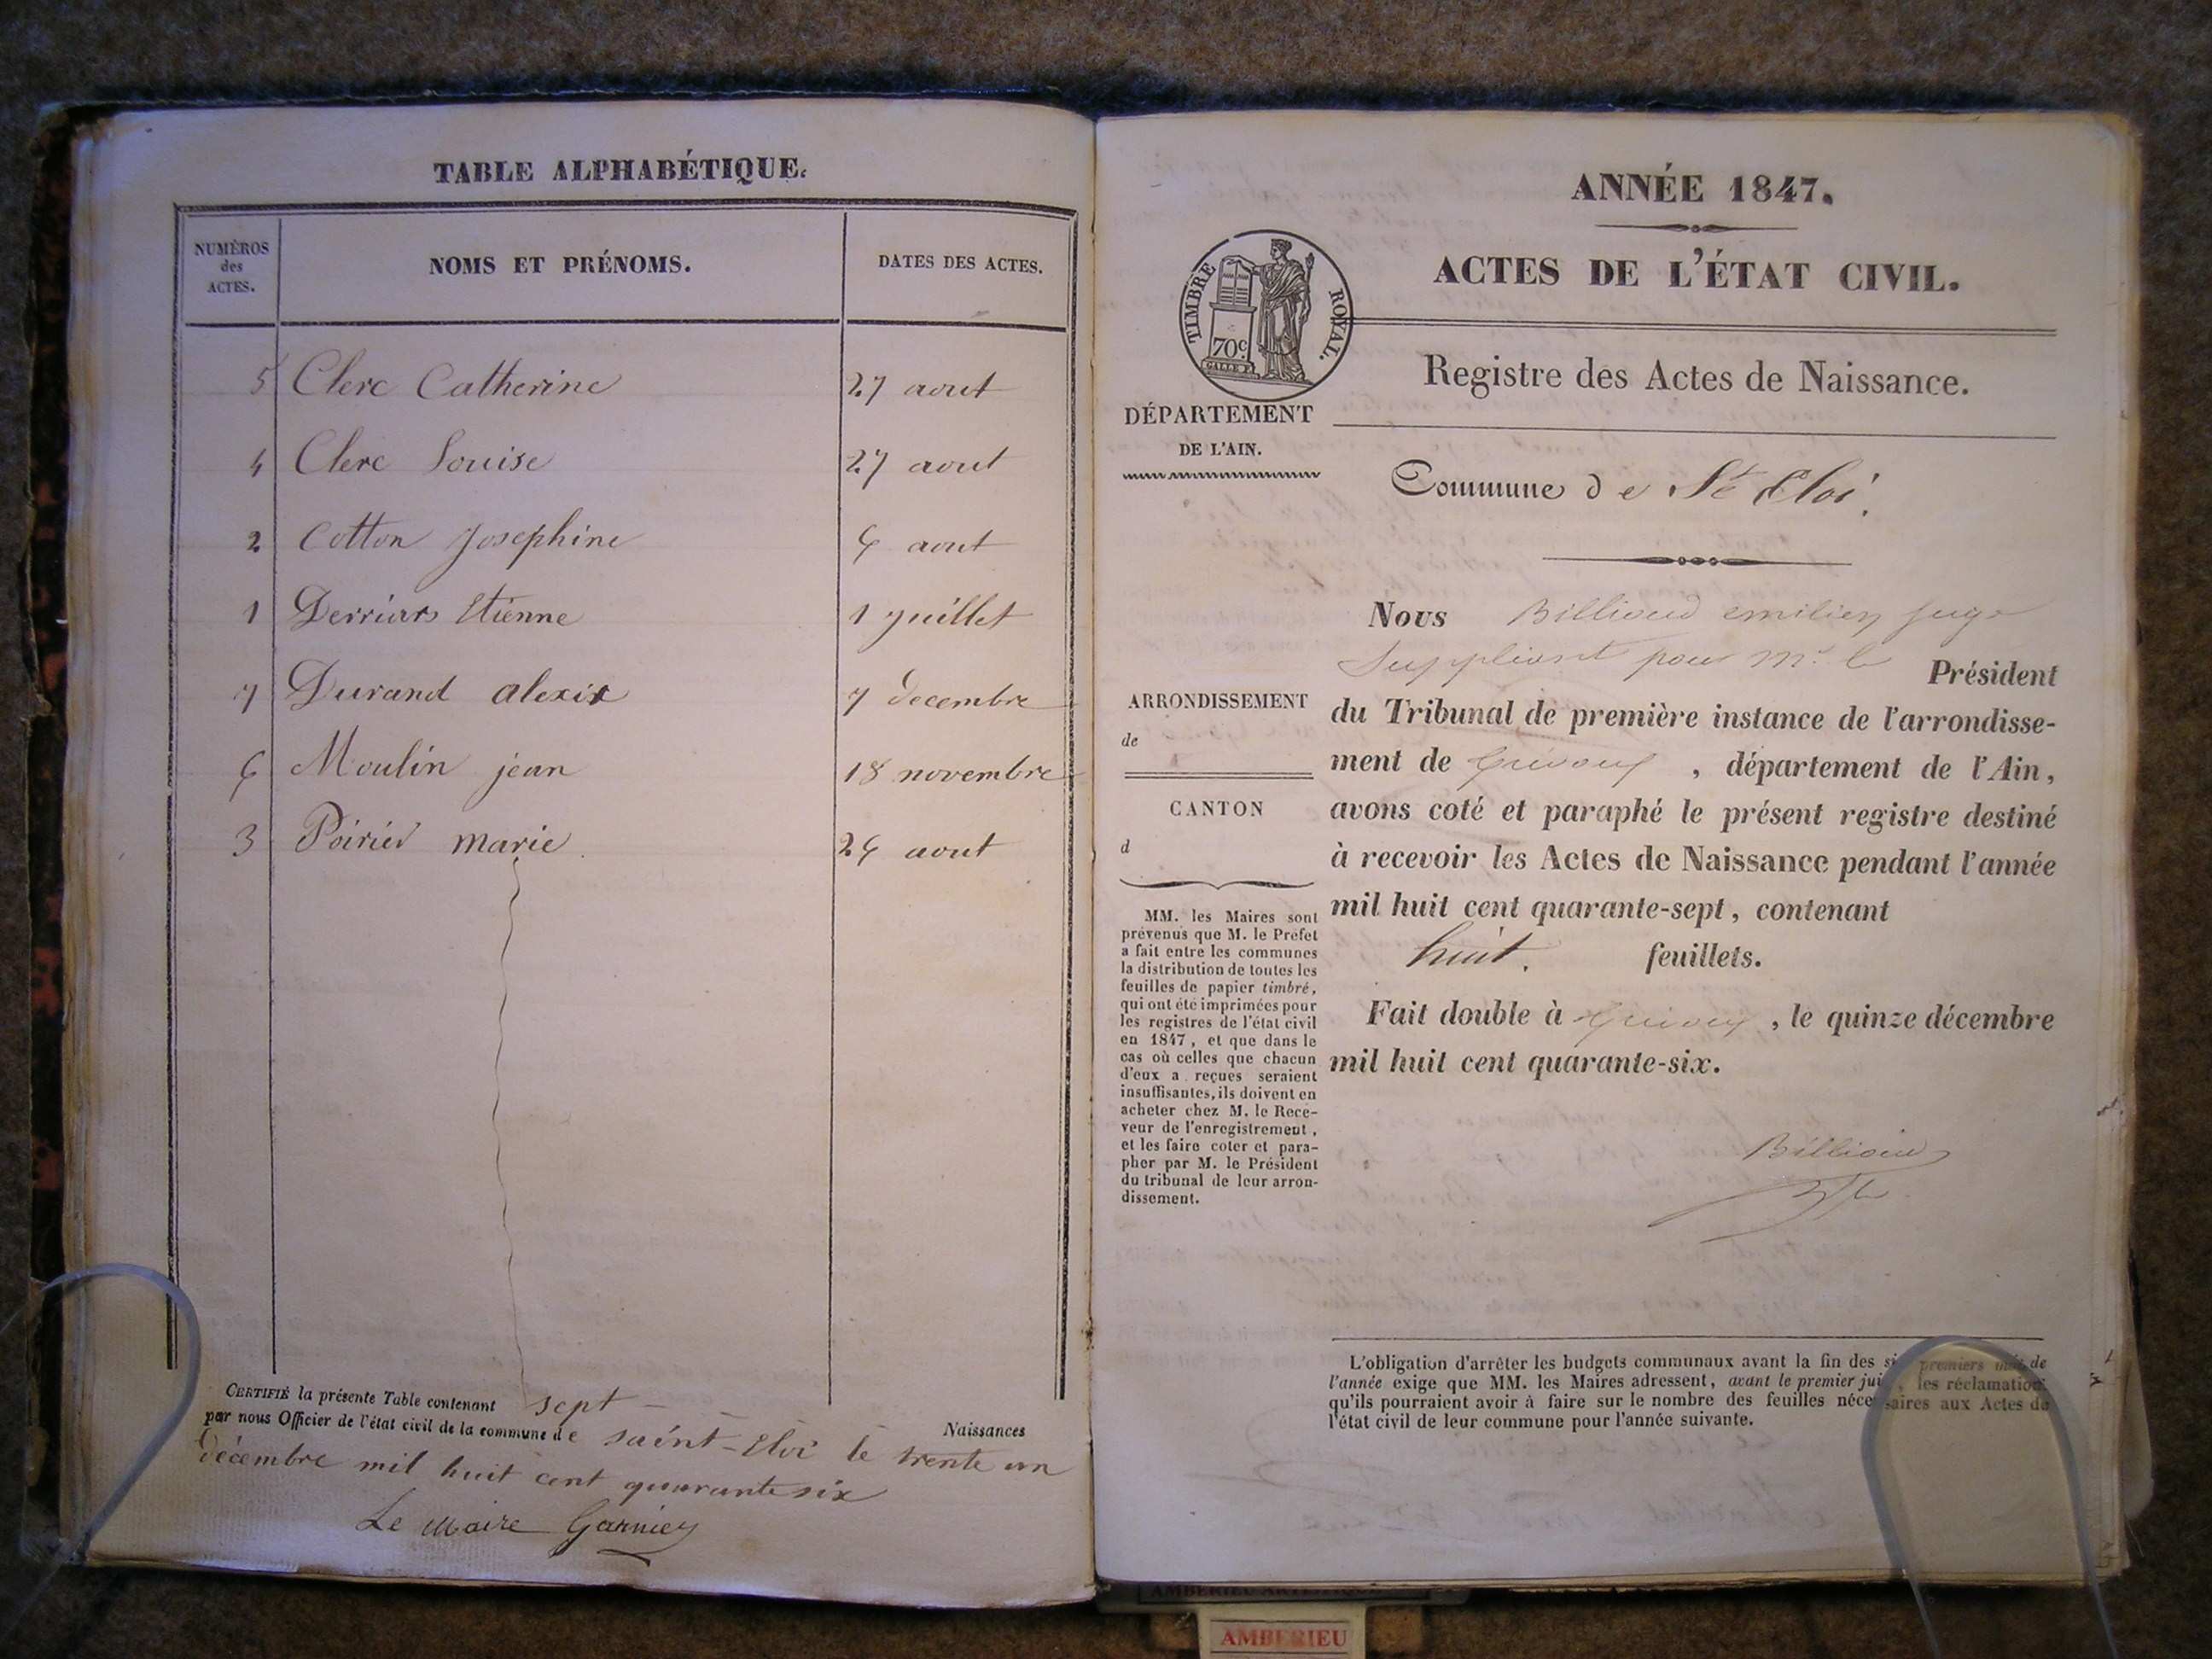 TABLE ALPHABÉTIQUE.
NUMÉROS des ACTES.
NOMS ET PRÉNOMS.
DATES DES ACTES.
5 Clerc Catherine 27 aout
4 Clerc Louise 27 aout
2 Cotton Josephine 6 aout
1 Derriars Etienne 1 juillet
7 Durand alexis 7 decembre
6 Moulin jean 18 novembre
3 Poirier marie 26 aout
CERTIFIÉ la présente Table contenant sept Naissances
par nous Officier de l'état civil de la commune de saint-Eloi le trente un
décembre mil huit cent quarante six
Le Maire Garnier
ANNÉE 1847.
ACTES DE L'ÉTAT CIVIL.
TIMBRE ROYAL.
70c.
Registre des Actes de Naissance.
DÉPARTEMENT
DE L'AIN.
Commune de St Eloi.
ARRONDISSEMENT
de
CANTON
d
MM. les Maires sont
prévenus que M. le Préfet
a fait entre les communes
la distribution de toutes les
feuilles de papier timbré,
qui ont été imprimées pour
les registres de l'état civil
en 1847, et que dans le
cas où celles que chacun
d'eux a reçues seraient
insuffisantes, ils doivent en
acheter chez M. le Rece-
veur de l'enregistrement,
et les faire coter et para-
pher par M. le Président
du tribunal de leur arron-
dissement.
Nous Billioud emilien juge
Suppléant pour Mr. le Président
du Tribunal de première instance de l'arrondisse-
ment de Trévoux, département de l'Ain,
avons coté et paraphé le présent registre destiné
à recevoir les Actes de Naissance pendant l'année
mil huit cent quarante-sept, contenant
huit. feuillets.
Fait double à Trévoux, le quinze décembre
mil huit cent quarante-six.
Billioud
L'obligation d'arrêter les budgets communaux avant la fin des six premiers mois de
l'année exige que MM. les Maires adressent, avant le premier juin, les réclamations
qu'ils pourraient avoir à faire sur le nombre des feuilles nécessaires aux Actes de
l'état civil de leur commune pour l'année suivante.
AMBERIEU